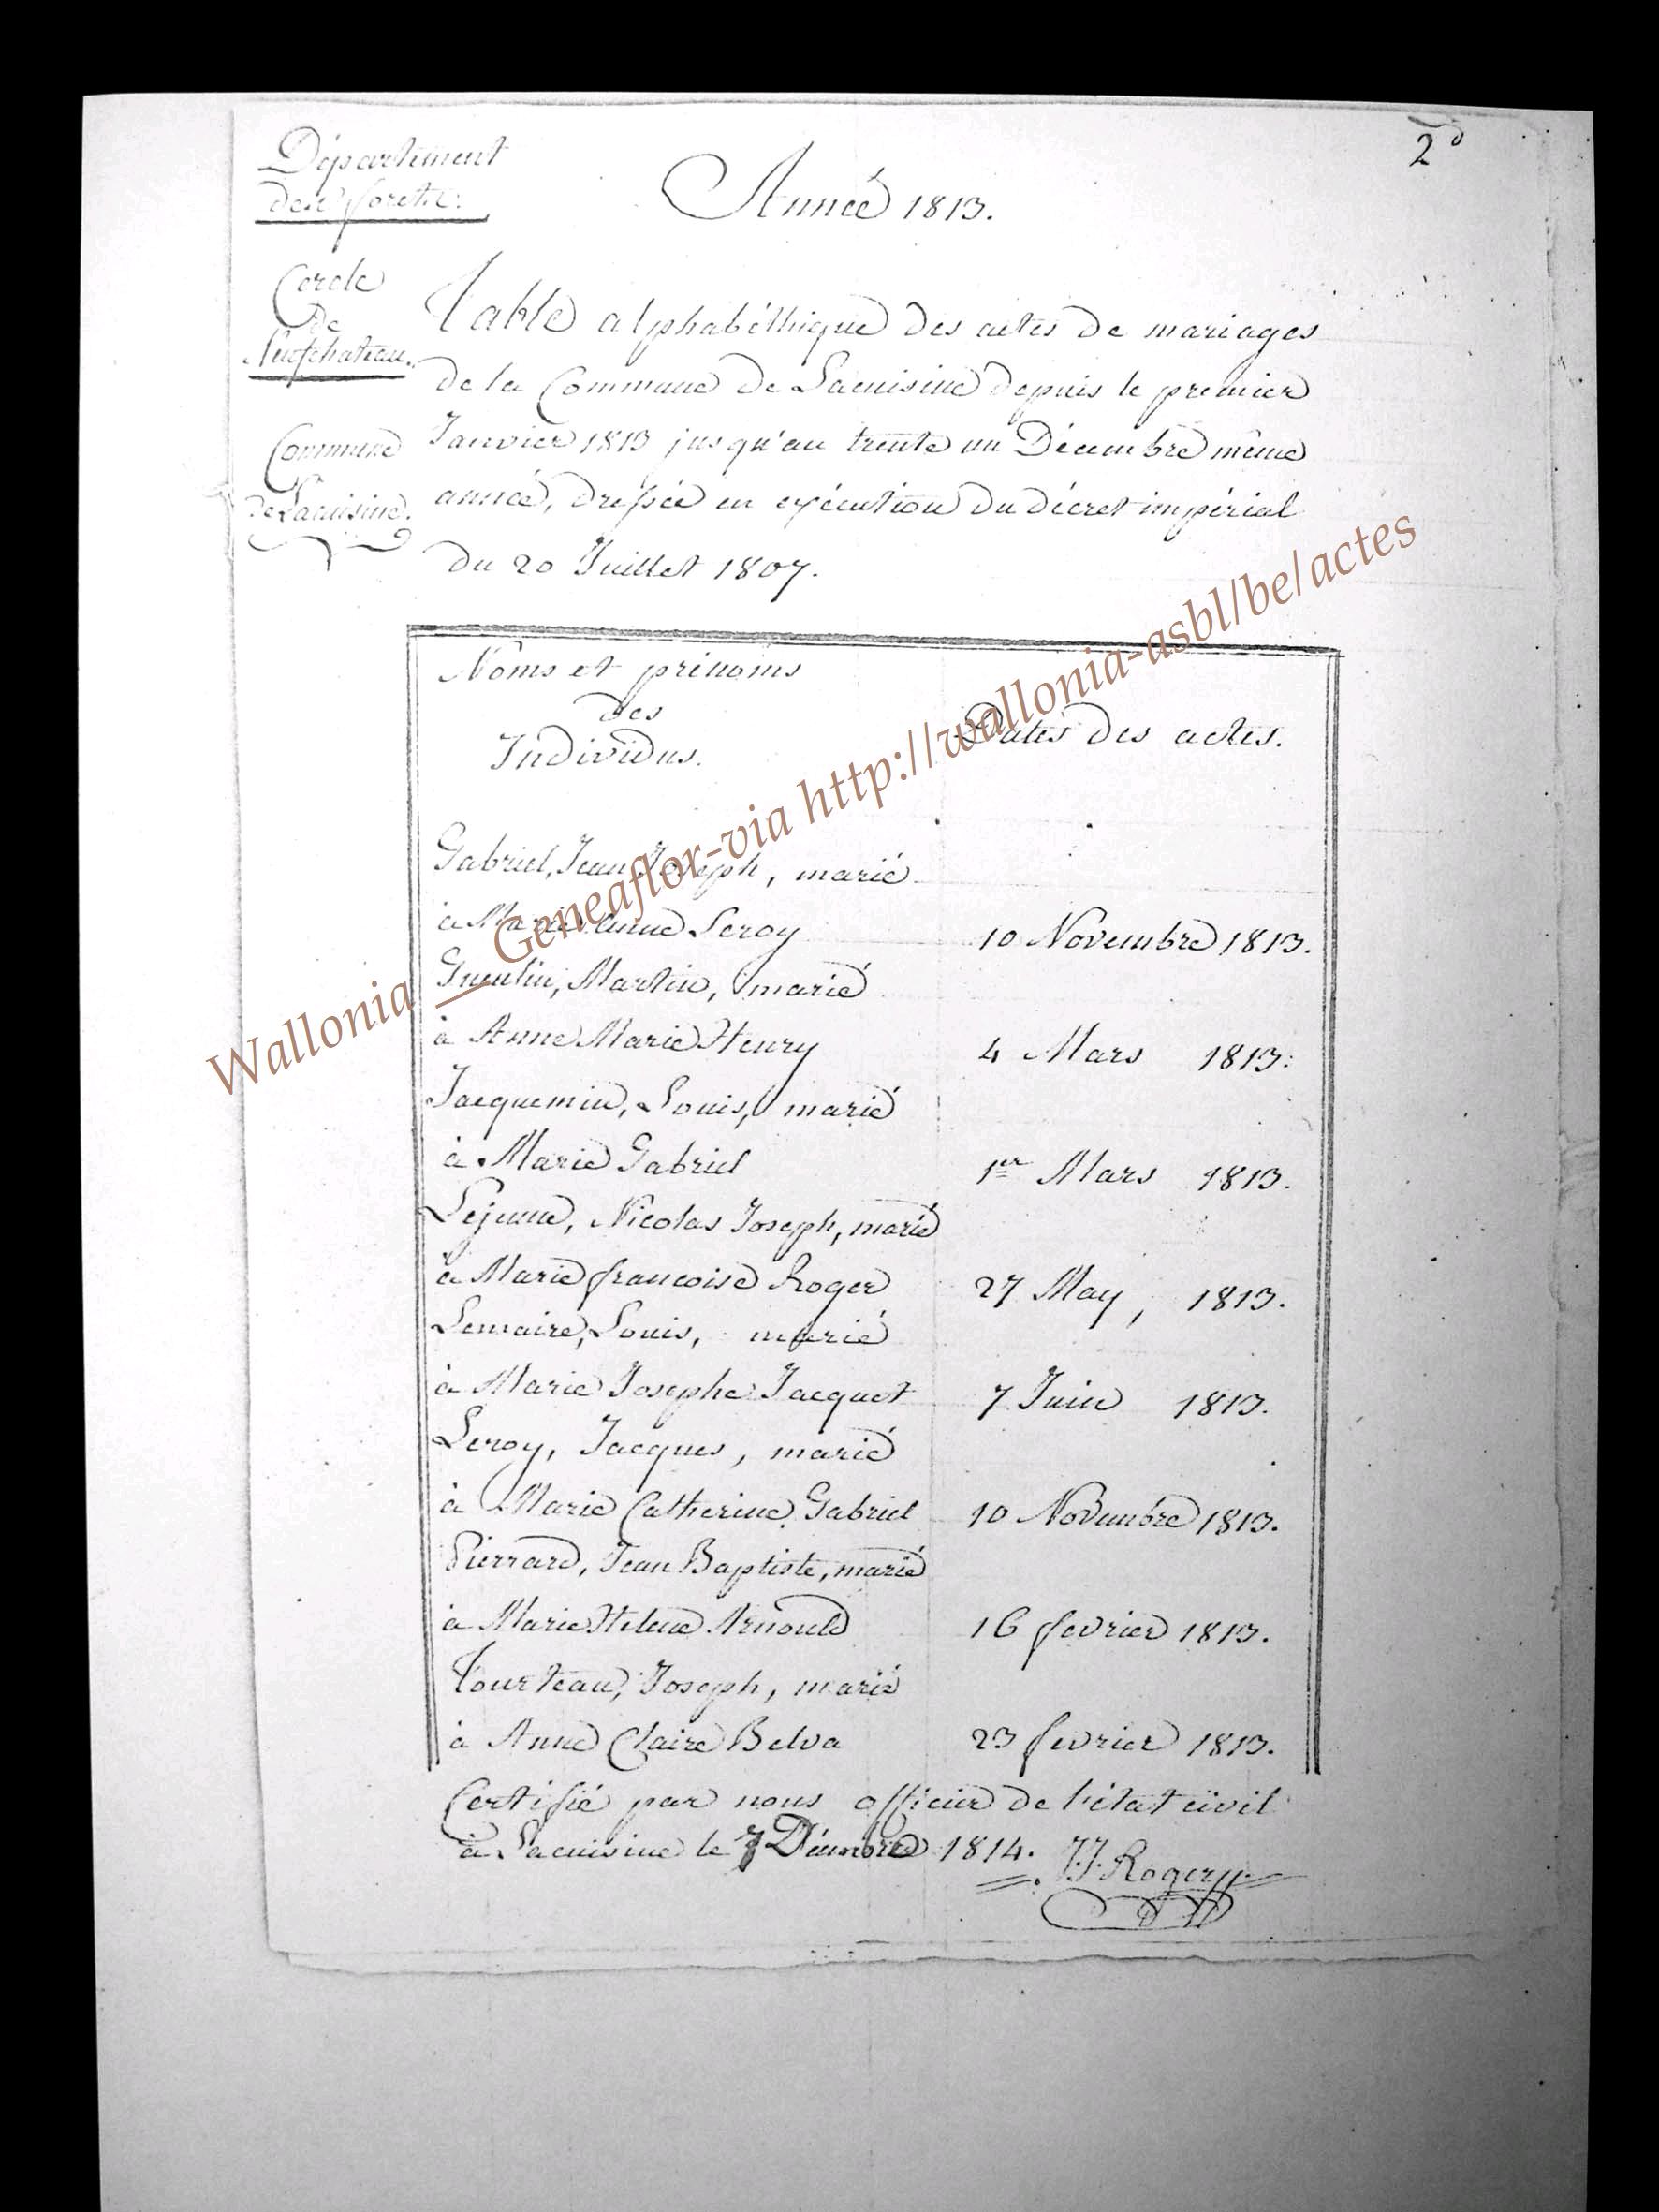 2d
Département
des forêts.
Année 1813.
Cercle
de
Neufchateau.
Commune
de Lacuisine.
Table alphabéthique des actes de mariages
de la Commune de Lacuisine depuis le premier
Janvier 1813 jusqu'au trente un Décembre même
année, dressée en exécution du décret impérial
du 20 Juillet 1807.
Noms et prénoms
des
Individus.
Dates des actes.
Gabriel, Jean Joseph, marié
à Marie Anne Leroy 10 Novembre 1813.
Gueulin, Martin, marié
à Anne Marie Henry 4 Mars 1813.
Jacquemin, Louis, marié
à Marie Gabriel 1er Mars 1813.
Lejeune, Nicolas Joseph, marié
à Marie francoise Roger 27 May, 1813.
Lemaire, Louis, marié
à Marie Josephe Jacquet 7 Juin 1813.
Leroy, Jacques, marié
à Marie Catherine Gabriel 10 Novembre 1813.
Pierrard, Jean Baptiste, marié
à Marie Helene Arnould 16 fevrier 1813.
Tourteau, Joseph, marié
à Anne Claire Belva 23 fevrier 1813.
Certifié par nous officier de l'état civil
à Lacuisine le 7 Décembre 1814. J.J. Roger
Wallonia _ Geneaflor-via http://wallonia-asbl/be/actes